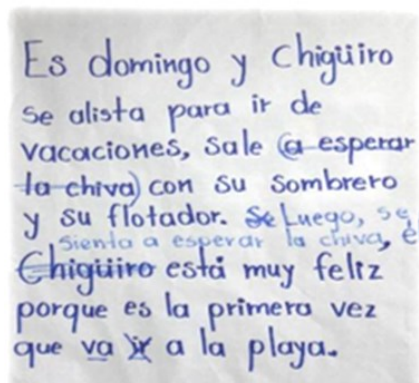 Es domingo y Chigüiro
se alista para ir de
vacaciones, sale (a esperar
la chiva) con su sombrero
y su flotador. Se Luego, se
sienta a esperar la chiva, é
Chigüiro está muy feliz
porque es la primera vez
que va ir a la playa.